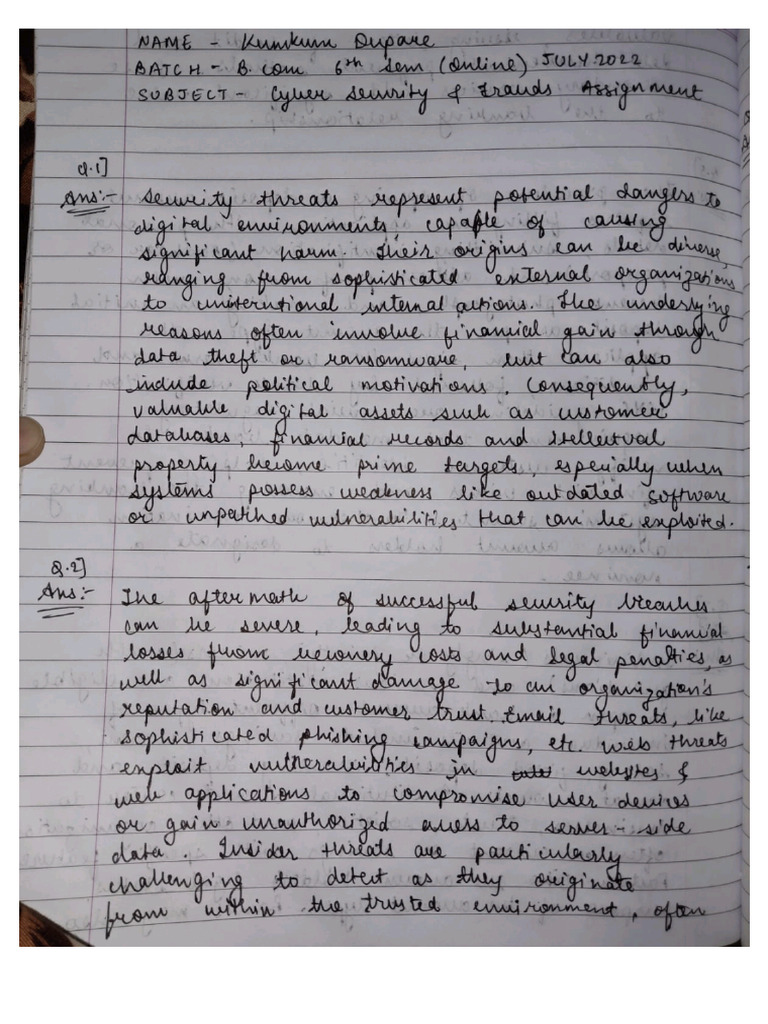 NAME - Kumkum Dupare
BATCH - B.com 6th sem (Online) JULY 2022
SUBJECT - Cyber Security & Frauds Assignment
Q.1]
Ans:- Security threats represent potential dangers to
digital environments, capable of causing
significant harm. Their origins can be diverse,
ranging from sophisticated external organizations
to unintentional internal actions. The underlying
reasons often involve financial gain through
data theft or ransomware, but can also
include political motivations. Consequently,
valuable digital assets such as customer
databases, financial records and itellectual
property become prime targets, especially when
systems possess weakness like outdated software
or unpatched vulnerabilities that can be exploited.
Q.2]
Ans:- The aftermath of successful security breaches
can be severe, leading to substantial financial
losses from recovery costs and legal penalties, as
well as significant damage to an organization's
reputation and customer trust. Email threats, like
sophisticated phishing campaigns, etc web threats
exploit vulnerabilities in websites &
web applications to compromise user devices
or gain unauthorized access to server-side
data. Insider threats are particularly
challenging to detect as they originate
from within the trusted environment, often